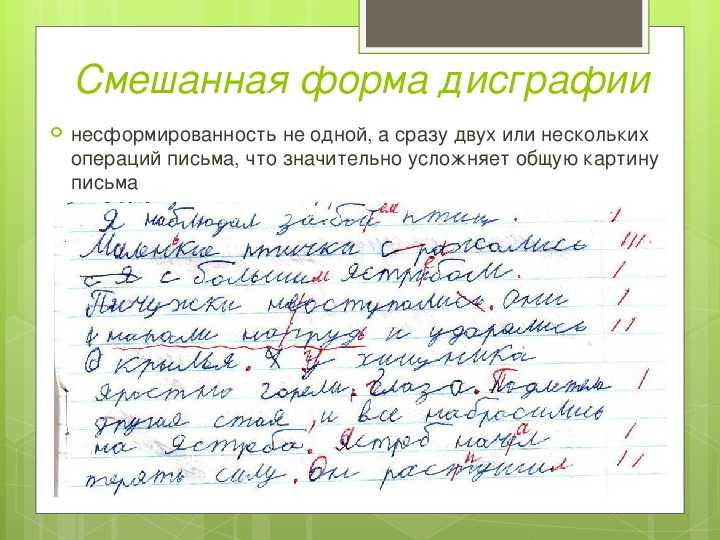 Смешанная форма дисграфии
несформированность не одной, а сразу двух или нескольких
операций письма, что значительно усложняет общую картину
письма
Я наблюдал за боем птиц.
Маленькие птички с ражались
с я с большим ястребом.
Пичужки не оступались. Они
напали на грудь и ударялись
О крылья. У хищника
яростно горели глаза. Подлетела
другая стая, и все набросились
на ястреба. Ястреб начал
терять силу. Он распушил